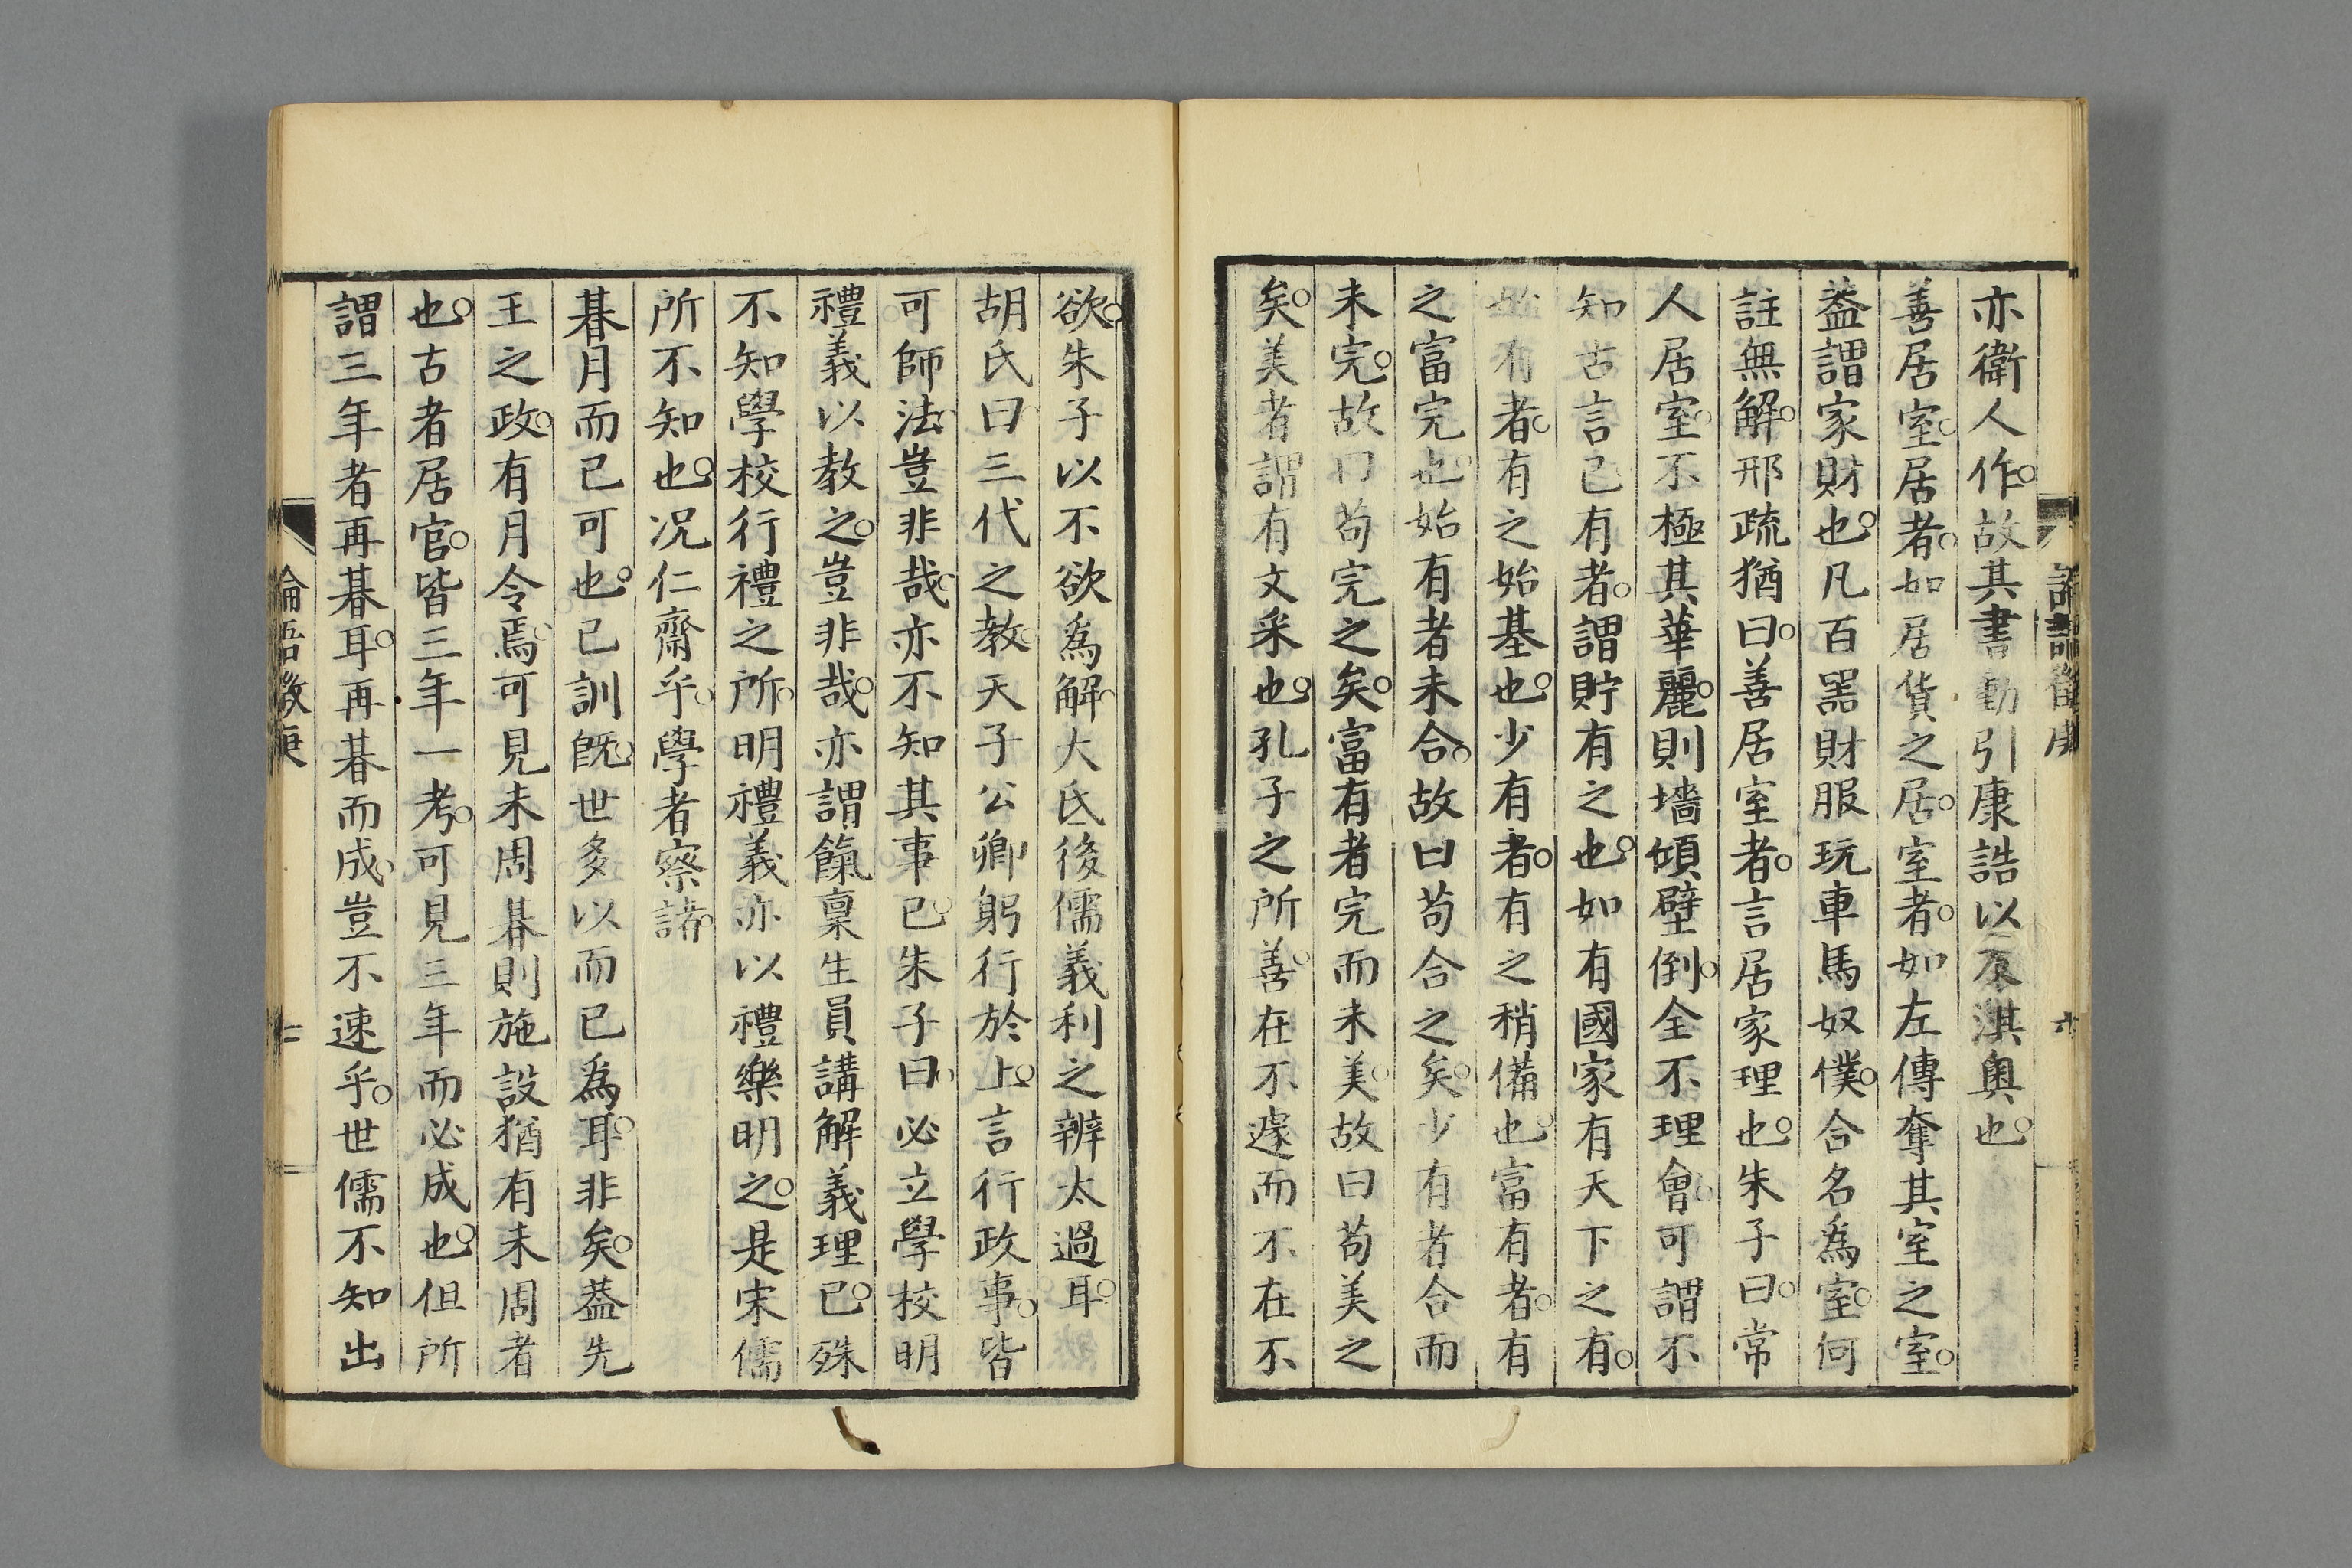 亦衛人作。故其書動引康誥以及淇奧也。
善居室。居者。如居貨之居。室者。如左傳奪其室之室。
葢謂家財也。凡百器財服玩車馬奴僕。合名爲室。何
註無解。邢疏猶曰。善居室者。言居家理也。朱子曰。常
人居室。不極其華麗。則墻傾壁倒。全不理會。可謂不
知古言已。有者。謂貯有之也。如有國家有天下之有。
始有者。有之始基也。少有者。有之稍備也。富有者。有
之富完也。始有者未合。故曰苟合之矣。少有者合而
未完。故曰苟完之矣。富有者完而未美。故曰苟美之
矣。美者謂有文采也。孔子之所善。在不遽而不在不
欲。朱子以不欲爲解。大氐後儒義利之辨太過耳。
胡氏曰三代之教。天子公卿躬行於上。言行政事。皆
可師法。豈非哉。亦不知其事已。朱子曰。必立學校明
禮義以教之。豈非哉。亦謂餼稟生員講解義理已。殊
不知學校行禮之所。明禮義亦以禮樂明之。是宋儒
所不知也。況仁齋乎。學者察諸。
朞月而已可也。已訓旣。世多以而已爲耳。非矣。葢先
王之政。有月令焉。可見未周朞則施設猶有未周者
也。古者居官。皆三年一考。可見三年而必成也。但所
謂三年者再朞耳。再朞而成。豈不速乎。世儒不知出
論語徵庚